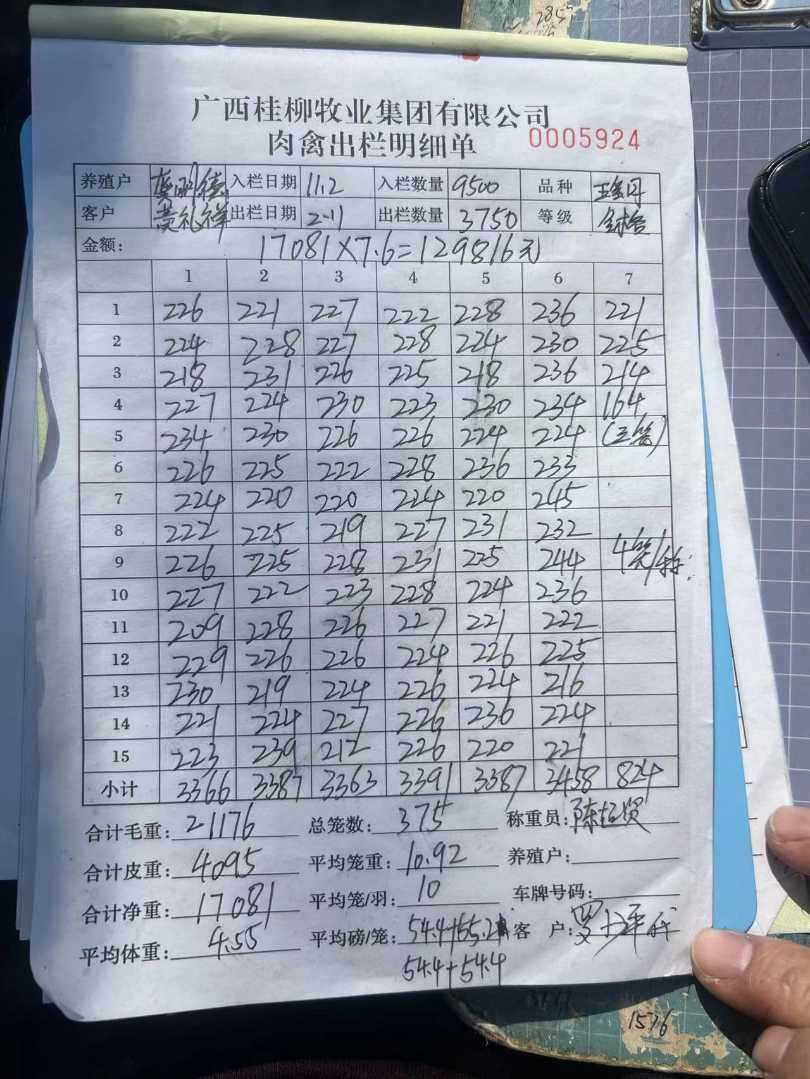 广西桂柳牧业集团有限公司
肉禽出栏明细单 0005924
养殖户 入栏日期 11.2 入栏数量 9500 品种
客户 黄礼祥 出栏日期 2-11 出栏数量 3750 等级
金额: 17081×7.6=129816元
1 2 3 4 5 6 7
1 226 221 227 222 228 236 221
2 224 228 227 228 224 230 225
3 218 231 226 225 218 236 214
4 227 224 230 223 230 234 164
5 234 230 226 226 224 224 (三笼)
6 226 225 222 228 236 233
7 224 220 220 224 220 245
8 222 225 219 227 231 232
9 226 225 228 231 225 244 4笼/称
10 227 222 223 228 224 236
11 209 228 226 227 221 222
12 229 226 226 224 226 225
13 230 219 224 226 224 216
14 221 224 227 226 236 224
15 223 239 212 226 220 221
小计 3366 3387 3363 3391 3387 3458 824
合计毛重: 21176 总笼数: 375 称重员: 陈超贤
合计皮重: 4095 平均笼重: 10.92 养殖户:
合计净重: 17081 平均笼/羽: 10 车牌号码:
平均体重: 4.55 平均磅/笼: 54.4+55.2 客 户:
54.4+54.4
285
1576